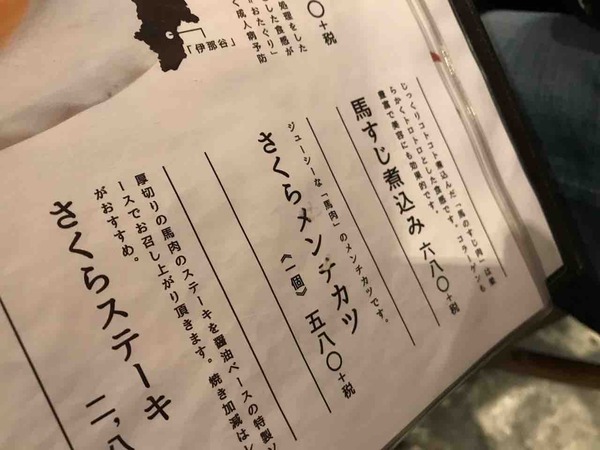 処理をした
した食感が
「おたぐり」
く成人病予防
〇+税
「伊那谷」
馬すじ煮込み 六八〇+税
じっくりコトコト煮込んだ「馬のすじ肉」は柔
らかくトロトロとした食感です。コラーゲンも
豊富で美容にも効果的です。
さくらメンチカツ 《一個》 五八〇+税
ジューシーな「馬肉」のメンチカツです。
さくらステーキ 二,八
厚切りの馬肉のステーキを醤油ベースの特製ソ
ースでお召し上がり頂きます。焼き加減はレ
がおすすめ。